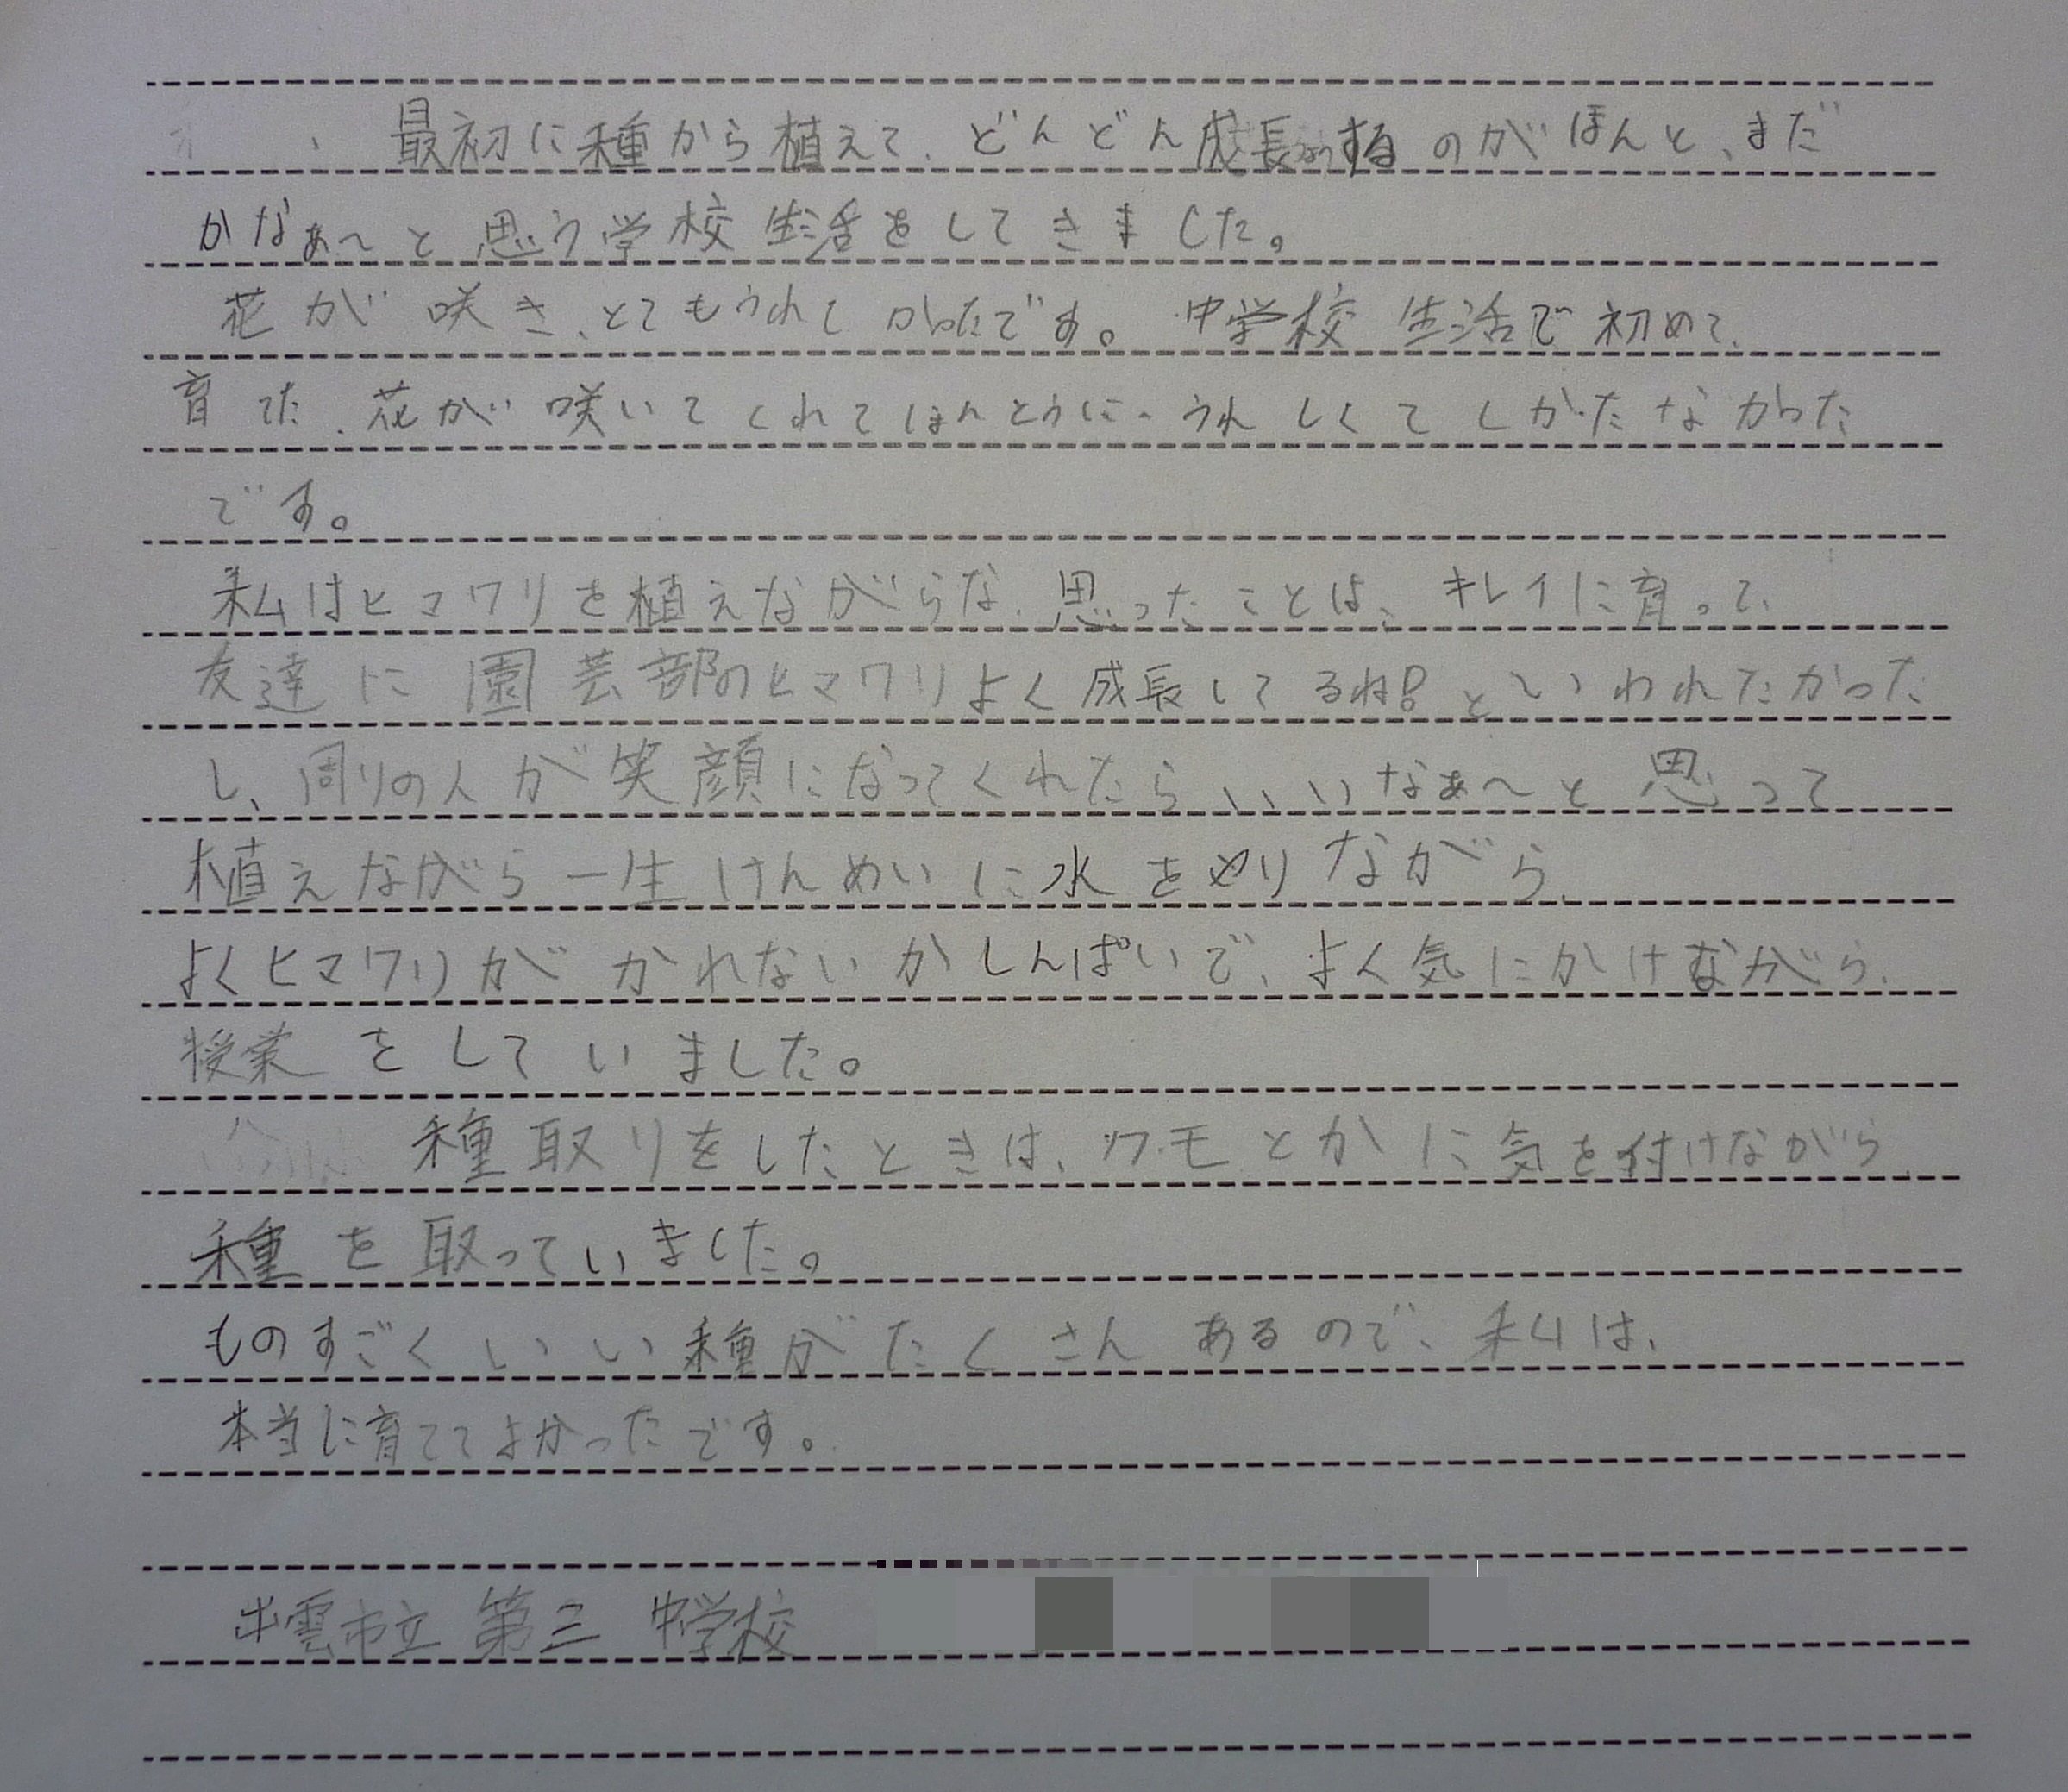 最初に種から植えて、どんどん成長するのがほんと、まだ
かなぁ〜と思う学校生活をしてきました。
花が咲き、とてもうれしかったです。中学校生活で初めて、
育てた、花が咲いてくれてほんとうに、うれしくてしかたなかった
です。
私はヒマワリを植えながらな、思ったことは、キレイに育って、
友達に園芸部のヒマワリよく成長してるね!といわれたかった
し、周りの人が笑顔になってくれたらいいなぁ〜と思って
植えながら一生けんめいに水をやりながら、
よくヒマワリがかれないかしんぱいで、よく気にかけながら、
授業をしていました。
種取りをしたときは、クモとかに気を付けながら、
種を取っていました。
ものすごくいい種がたくさんあるので、私は、
本当に育ててよかったです。
出雲市立第三中学校